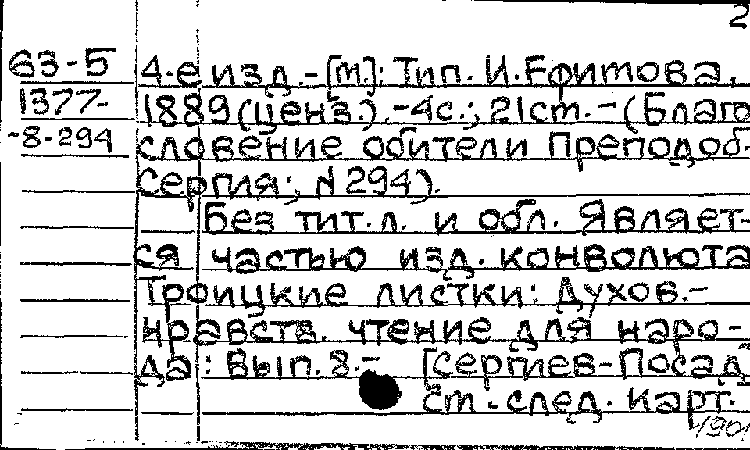 2
63-5 4-е изд.-[М.]: Тип. И.Ефимова,
1377- 1889(ценз.).-4с.; 21см.-(Благо
-8-294 словение обители Преподоб.
Сергия; N 294).
Без тит.л. и обл. Являет-
ся частью изд. конволюта
Троицкие листки: Духов.-
нравств. чтение для наро-
да: Вып.8.- [Сергиев-Посад,
См.след.карт.